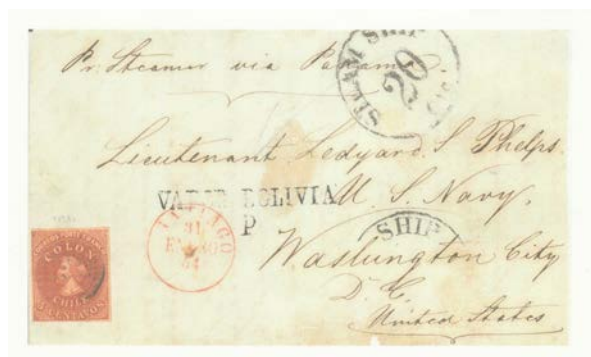 Pr. Steamer via Panama.
STEAM SHIP
20
Lieutenant Ledyard S Phelps.
VAPOR BOLIVIA
U. S. Navy,
P
SHIP
SANTIAGO
31
ENERO
54
Washington City
D. C.
United States
COLON
CHILE
5 CENTAVOS